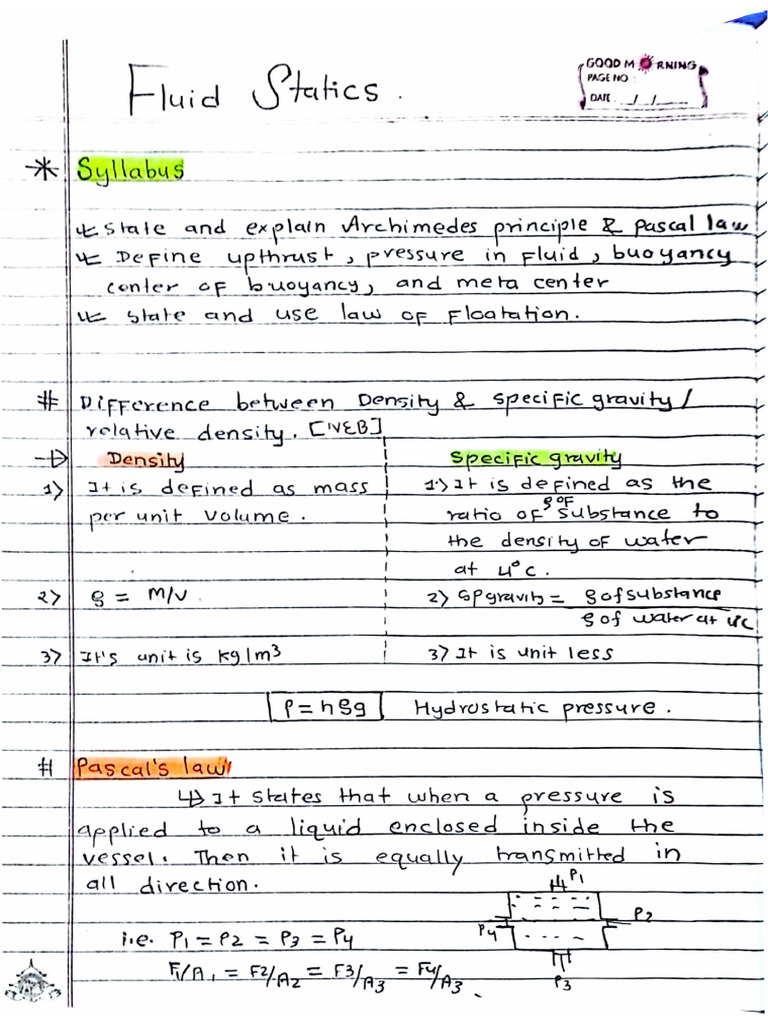 GOOD M RNING
PAGE NO :
DATE: / /
Fluid Statics.
* Syllabus
State and explain Archimedes principle & pascal law
Define upthrust, pressure in fluid, buoyancy
center of buoyancy, and meta center
State and use law of Floatation.
# Difference between Density & specific gravity /
relative density. [NEB]
Density
Specific gravity
1) It is defined as mass
per unit volume.
1) It is defined as the
ratio of ρ of substance to
the density of water
at 4°c.
2) ρ = M/V.
2) SP gravity = ρ of substance
ρ of water at 4°c
3) It's unit is kg/m³
3) It is unit less
P = hρg Hydrostatic pressure.
# Pascal's law
↳ It states that when a pressure is
applied to a liquid enclosed inside the
vessel. Then it is equally transmitted in
all direction.
P1
P2
P4
P3
i.e. P1 = P2 = P3 = P4
F1/A1 = F2/A2 = F3/A3 = F4/A3.